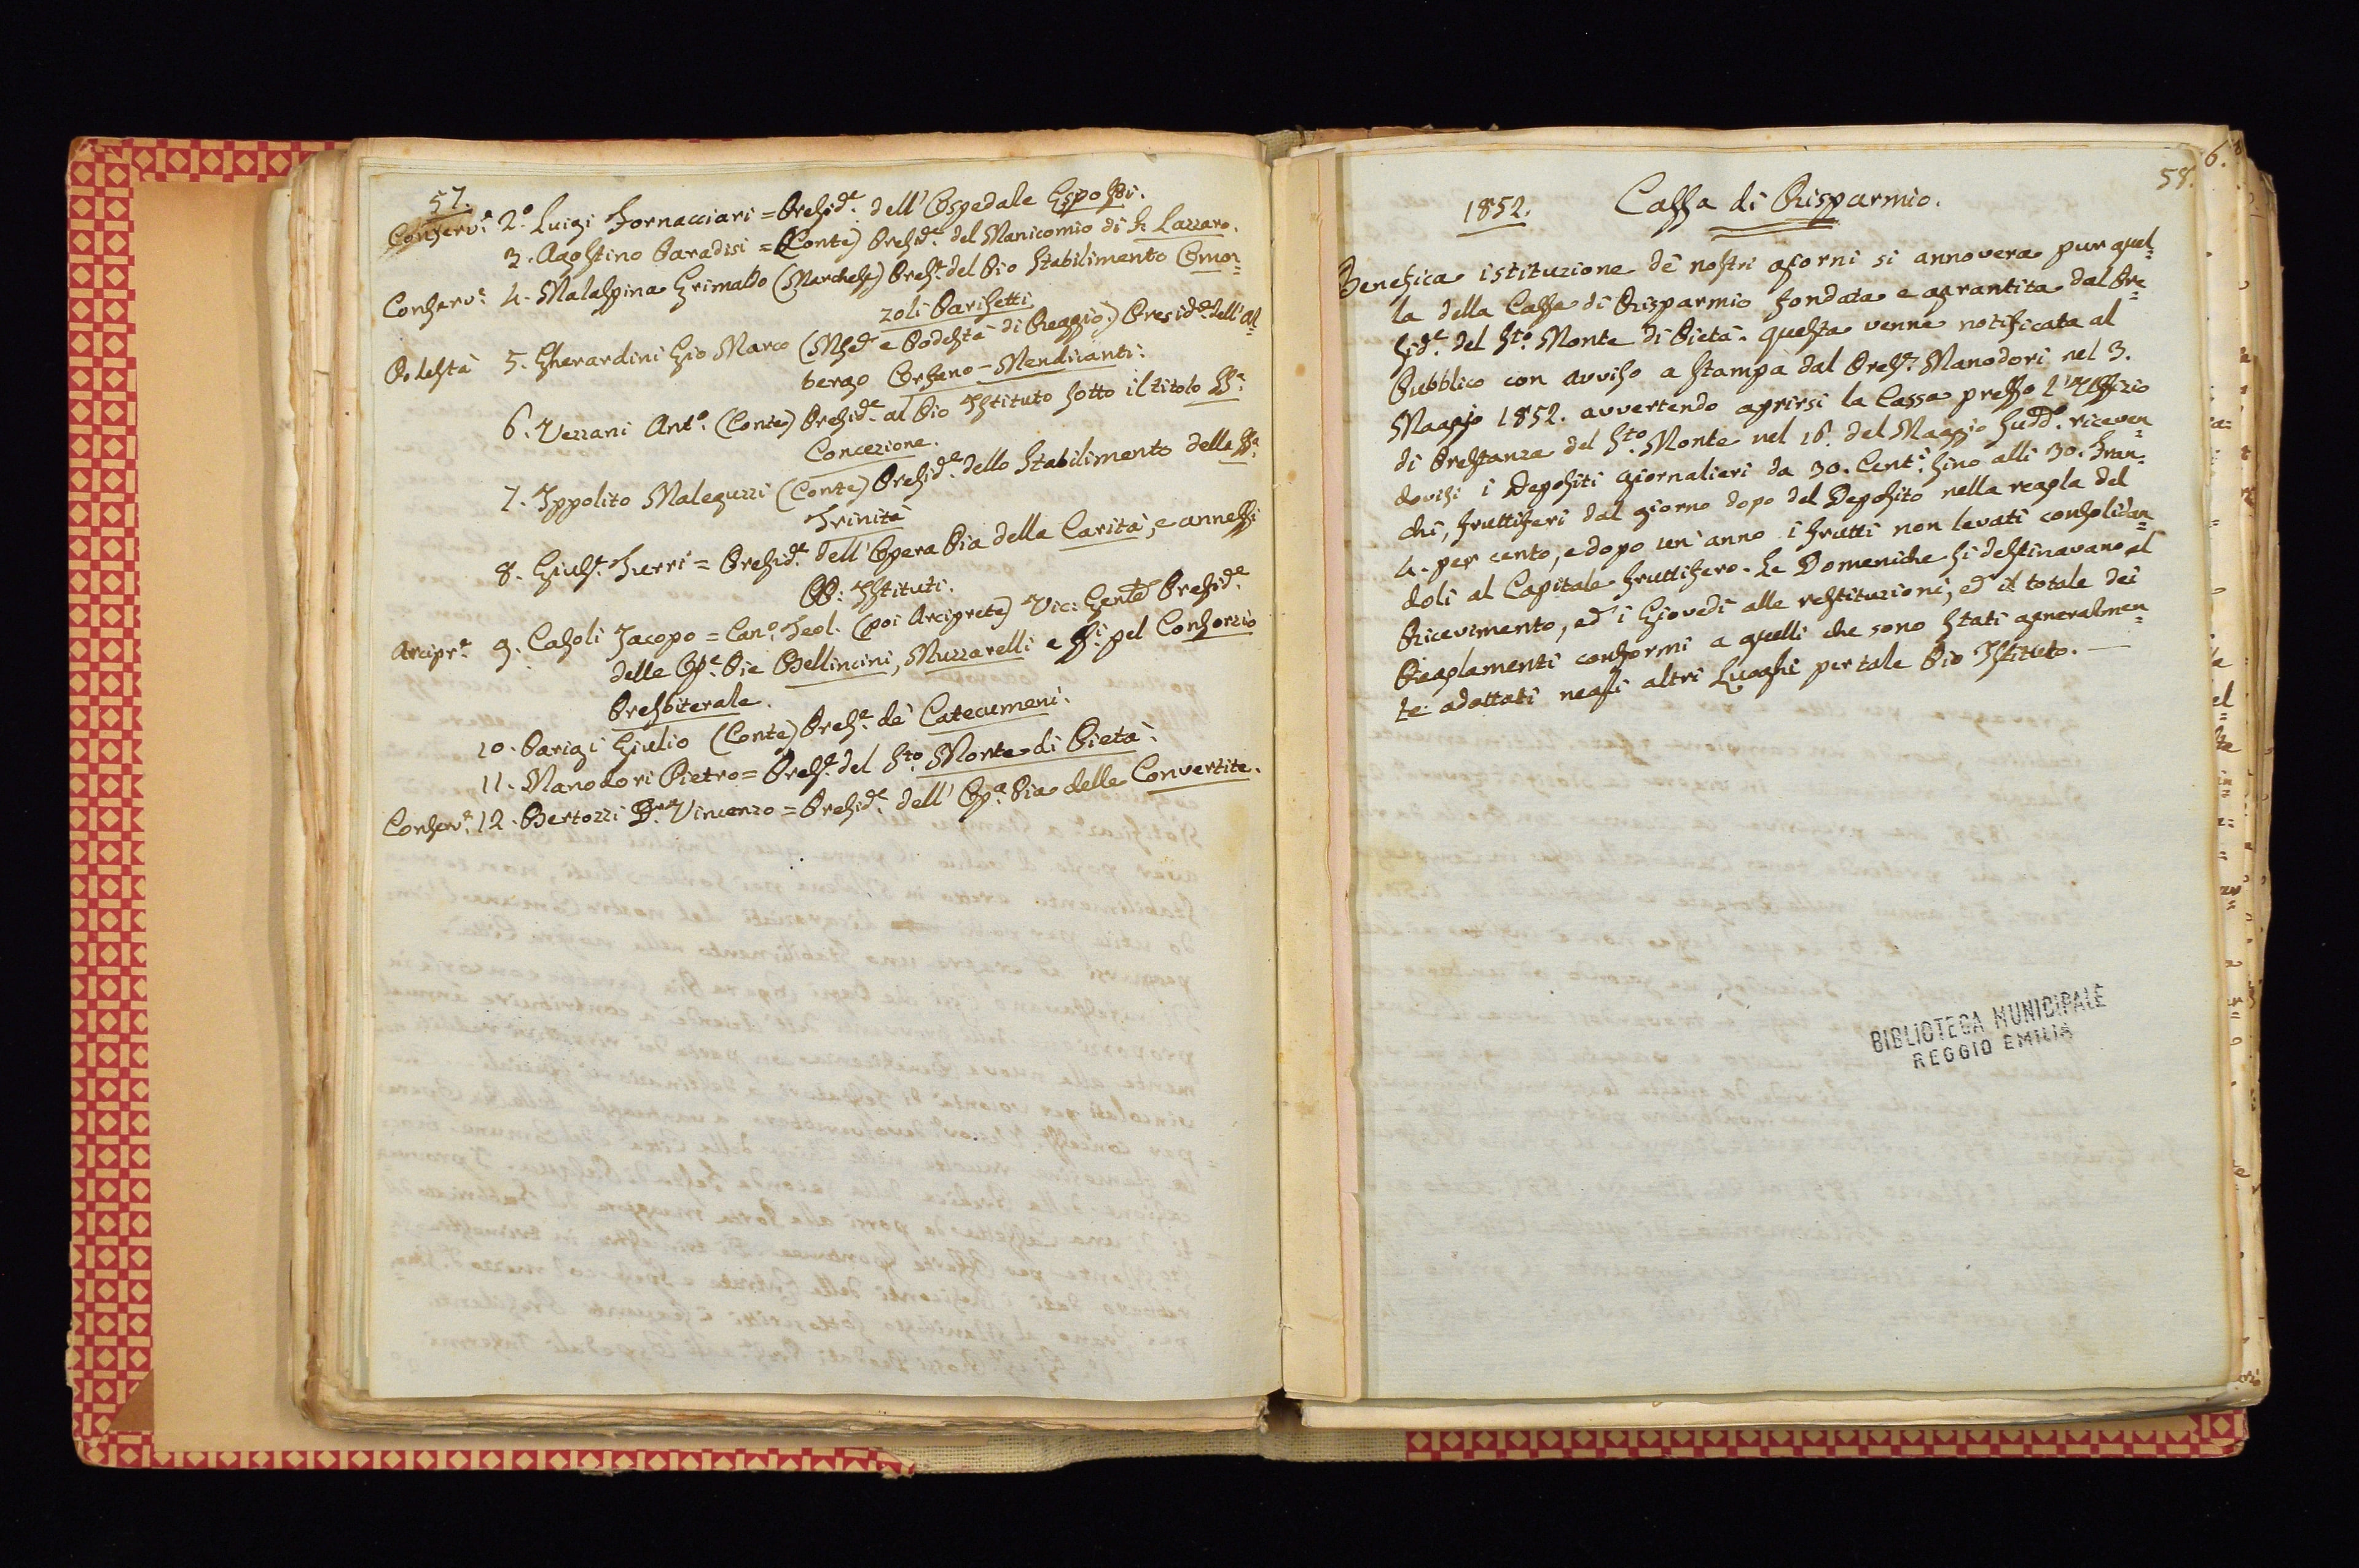 57.
Conserv.e 2.o Luigi Fornacciari = Presid.e dell' Ospedale Esposti.
3. Agostino Paradisi = (Conte) Presid.e del Manicomio di S. Lazzaro.
Conserv.e 4. Malaspina Grimaldo (Marchese) Pres.e del Pio Stabilimento Omoz=
zoli Parisetti
Podestà 5. Gherardini Gio Marco (Mse. e Podestà di Reggio) Presid.e dell' Al=
bergo Orfano-Mendicanti.
6. Vezzani Ant.o (Conte) Presid.e al Pio Istituto sotto il titolo SS.a
Concezione.
7. Ippolito Maleguzzi (Conte) Presid.e dello Stabilimento della SS.a
Trinità
8. Gius.e Turri = Presid.e dell' Opera Pia della Carità, e annessi
PP. Istituti.
Arcipr.e 9. Casoli Jacopo = Can.o Teol. (poi Arciprete) Vic: Gente Presid.e
delle Op.e Pie Bellincini, Muzzarelli e SS.i pel Consorzio
Presbiterale.
10. Parigi Giulio (Conte) Pres.e de' Catecumeni.
11. Manodori Pietro = Pres.e del Sto. Monte di Pietà.
Conserv.e 12. Bertozzi Dr. Vincenzo = Presid.e dell' Op.a Pia delle Convertite.
58.
1852. Cassa di Risparmio.
Benefica istituzione de' nostri giorni si annovera pur quel=
la della Cassa di Risparmio fondata e garantita dal Pre=
sid.e del Sto. Monte di Pietà. Questa venne notificata al
Pubblico con avviso a stampa dal Pres.e Manodori nel 3.
Maggio 1852. avvertendo aprirsi la Cassa presso l'Uffizio
di Prestanza del Sto. Monte nel 16. del Maggio sudd.o riceven=
dovisi i Depositi giornalieri da 30. Cent.i sino alli 30. Fran=
chi, fruttiferi dal giorno dopo del Deposito nella regola del
4. per cento, e dopo un' anno i frutti non levati consolidan=
doli al Capitale fruttifero. Le Domeniche si destinavano al
Ricevimento, ed i Giovedì alle restituzioni, ed il totale dei
Regolamenti conformi a quelli che sono stati generalmen=
te adottati negli altri Luoghi per tale Pio Istituto. —
BIBLIOTECA MUNICIPALE
REGGIO EMILIA
6.